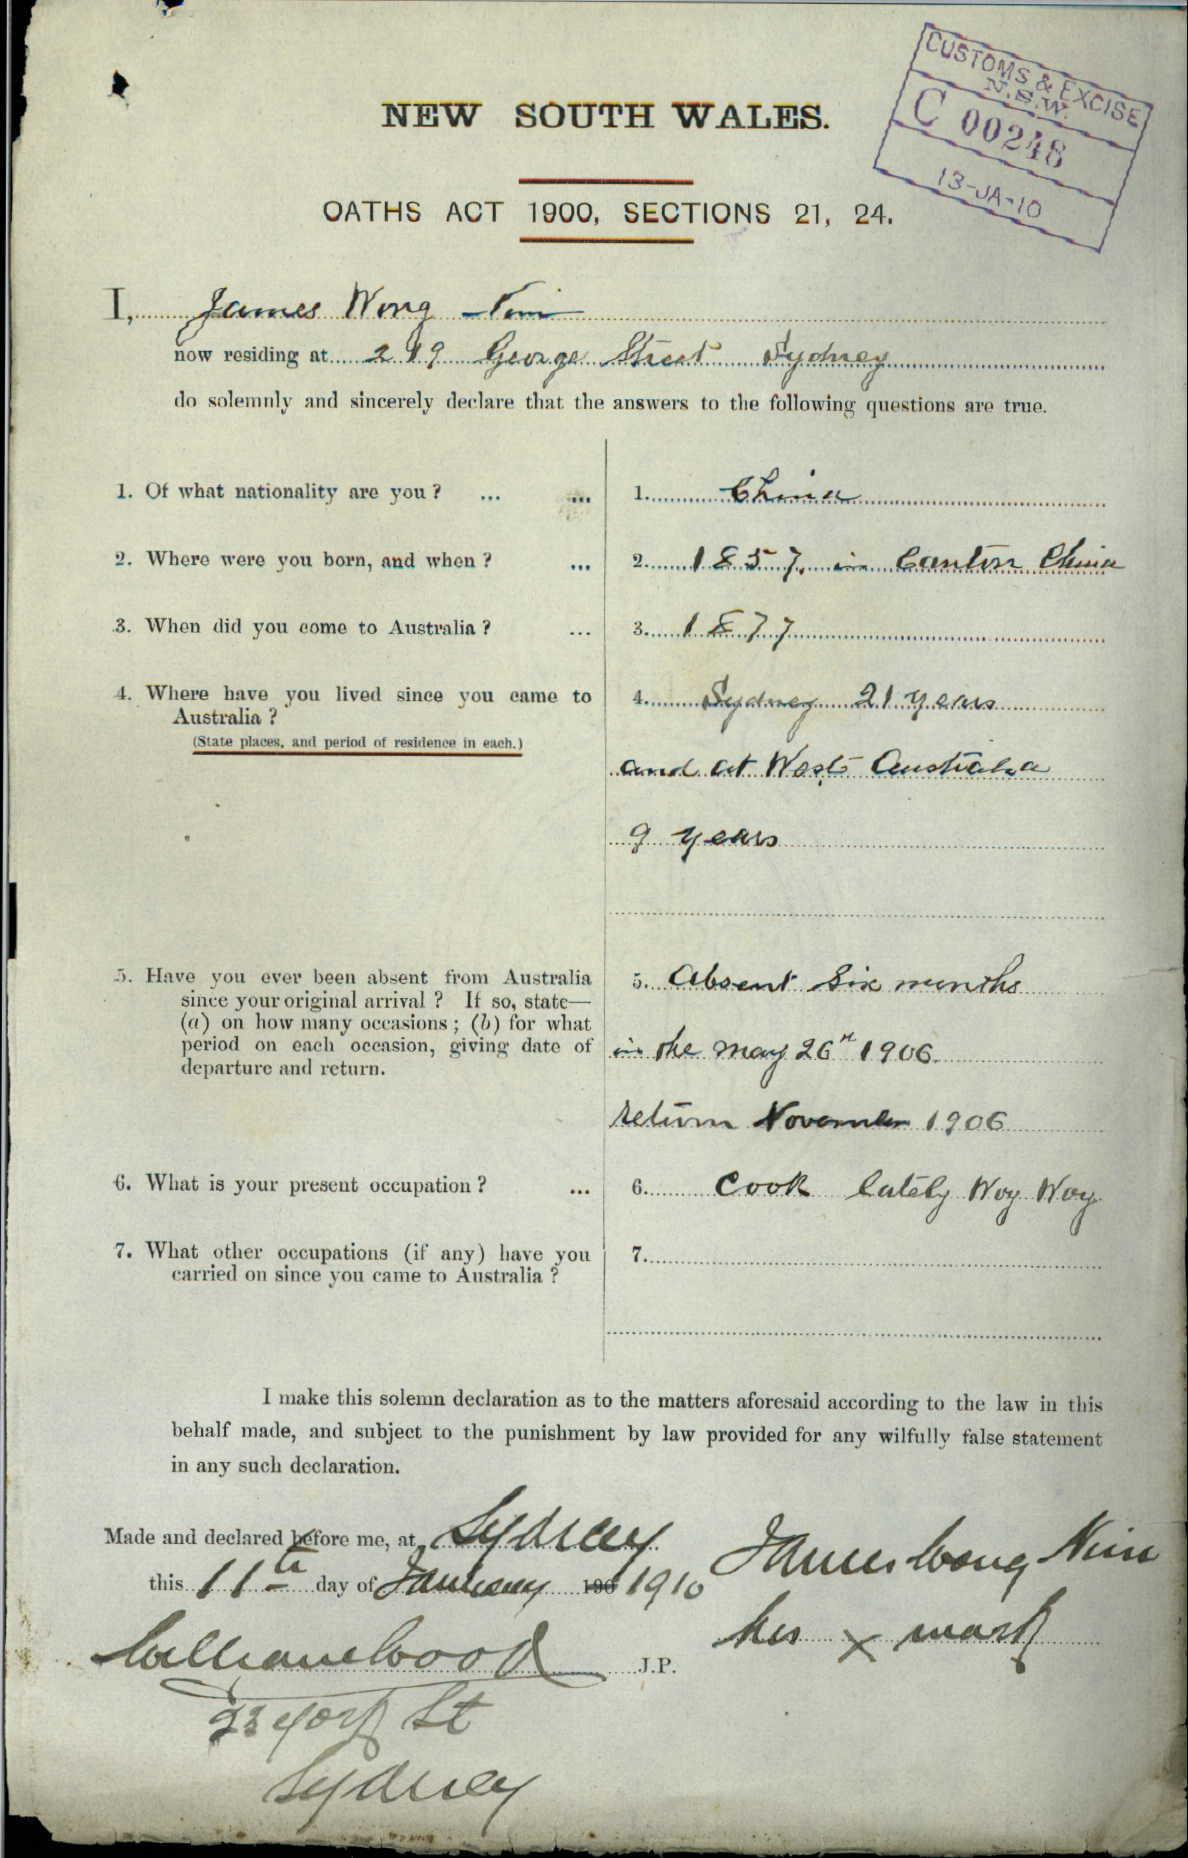 CUSTOMS & EXCISE
N.S.W.
C 00248
13-JA-10
NEW SOUTH WALES.
OATHS ACT 1900, SECTIONS 21, 24.
I, James Wong Nim
now residing at 219 George Street Sydney
do solemnly and sincerely declare that the answers to the following questions are true.
1. Of what nationality are you ? ... ... 1. China
2. Where were you born, and when ? ... 2. 1857. in Canton China
3. When did you come to Australia ? ... 3. 1877
4. Where have you lived since you came to 4. Sydney 21 years
Australia ?
(State places, and period of residence in each.)
and at West Australia
9 years
5. Have you ever been absent from Australia 5. Absent Six months
since your original arrival ? If so, state—
(a) on how many occasions ; (b) for what
period on each occasion, giving date of in the May 26th 1906.
departure and return.
return November 1906
6. What is your present occupation ? ... 6. Cook lately Woy Woy
7. What other occupations (if any) have you 7.
carried on since you came to Australia ?
I make this solemn declaration as to the matters aforesaid according to the law in this
behalf made, and subject to the punishment by law provided for any wilfully false statement
in any such declaration.
Made and declared before me, at Sydney
this 11th day of January 190 1910 James Wong Nim
his x mark
William Wood J.P.
23 York St
Sydney